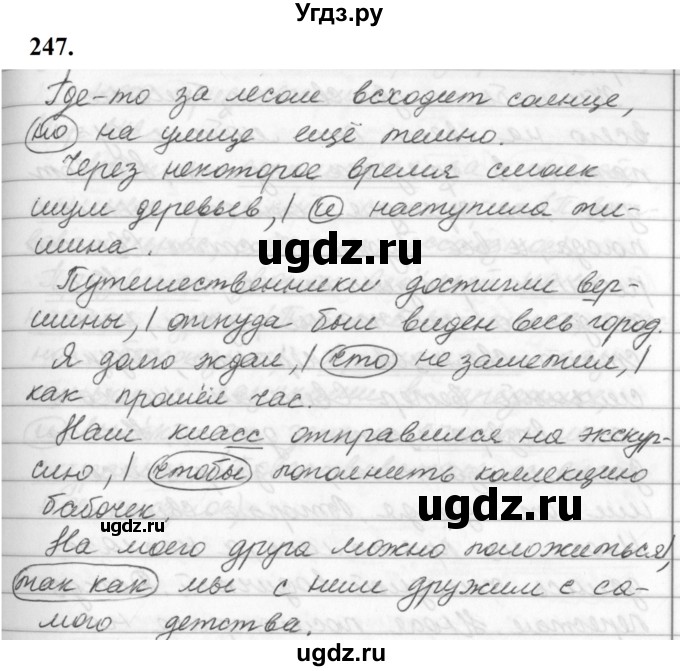 Угдз.ру
247.
Где-то за лесом всходит солнце,
но на улице ещё темно.
Через некоторое время смолк
шум деревьев, | и наступила ти-
шина.
ugdz.ru
Путешественники достигли вер-
шины, | откуда был виден весь город.
Я долго ждал, | что не заметил, |
как прошёл час.
Наш класс отправился на экскур-
сию, | чтобы пополнить коллекцию
бабочек.
ugdz.ru
ugdz.ru
На моего друга можно положиться, |
так как мы с ним дружим с са-
мого детства.
ugdz.ru